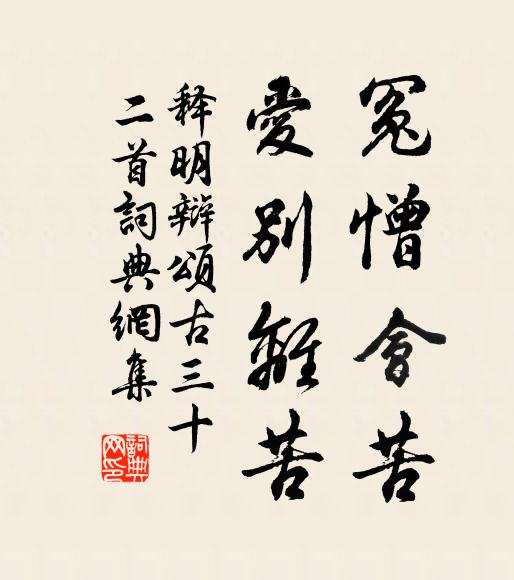 冤憎會苦
愛別離苦
释明辯頌古三十
二首詞典網集
詞典
网印